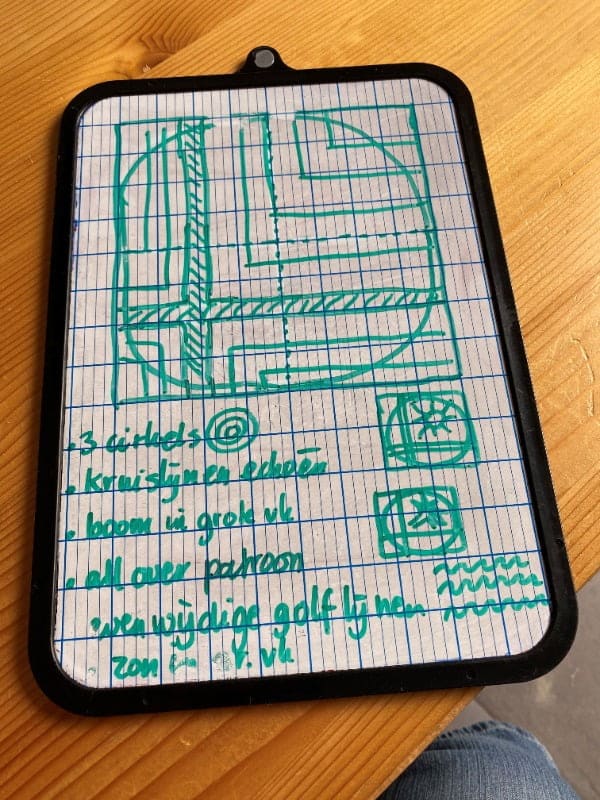 . 3 cirkels
. kruislijnen echoën
. boom in grote vk
. all over patroon
wijdige golflijnen
zon vk